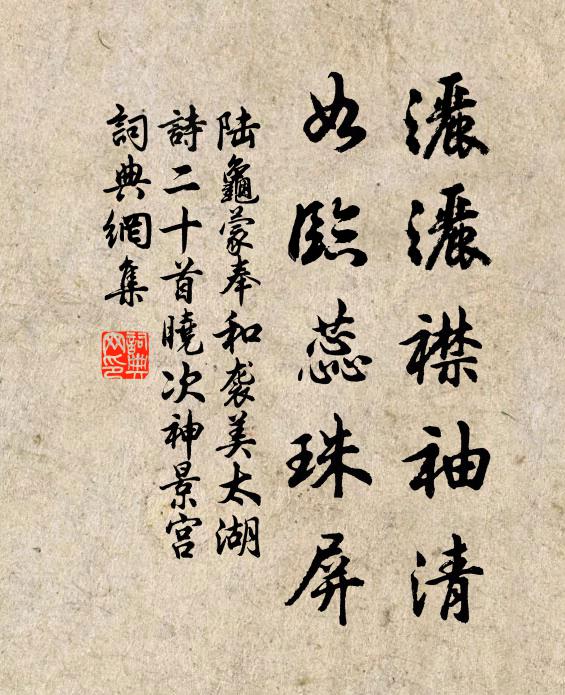 灑灑襟袖清
如臨蕊珠屏
陆龜蒙奉和袭美太湖
詩二十首曉次神景宫
詞典網集
詞典
网印